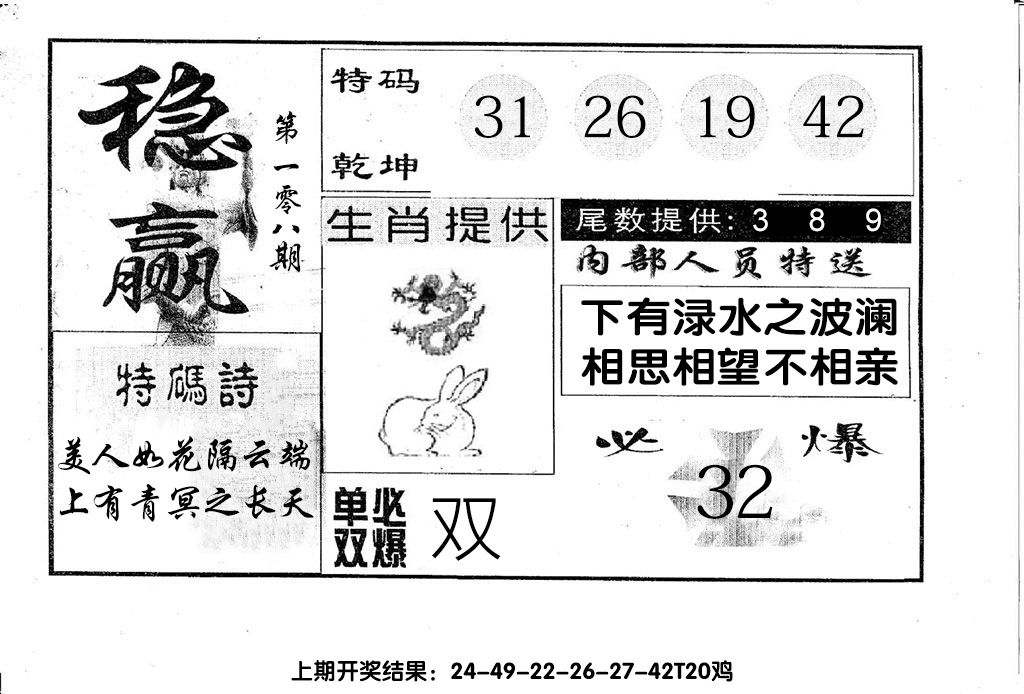 稳赢
第一零八期
特码
乾坤
31 26 19 42
特碼詩
美人如花隔云端
上有青冥之长天
生肖提供
单双必爆
双
尾数提供: 3 8 9
内部人员特送
下有渌水之波澜
相思相望不相亲
必爆
32
上期开奖结果：24-49-22-26-27-42T20鸡